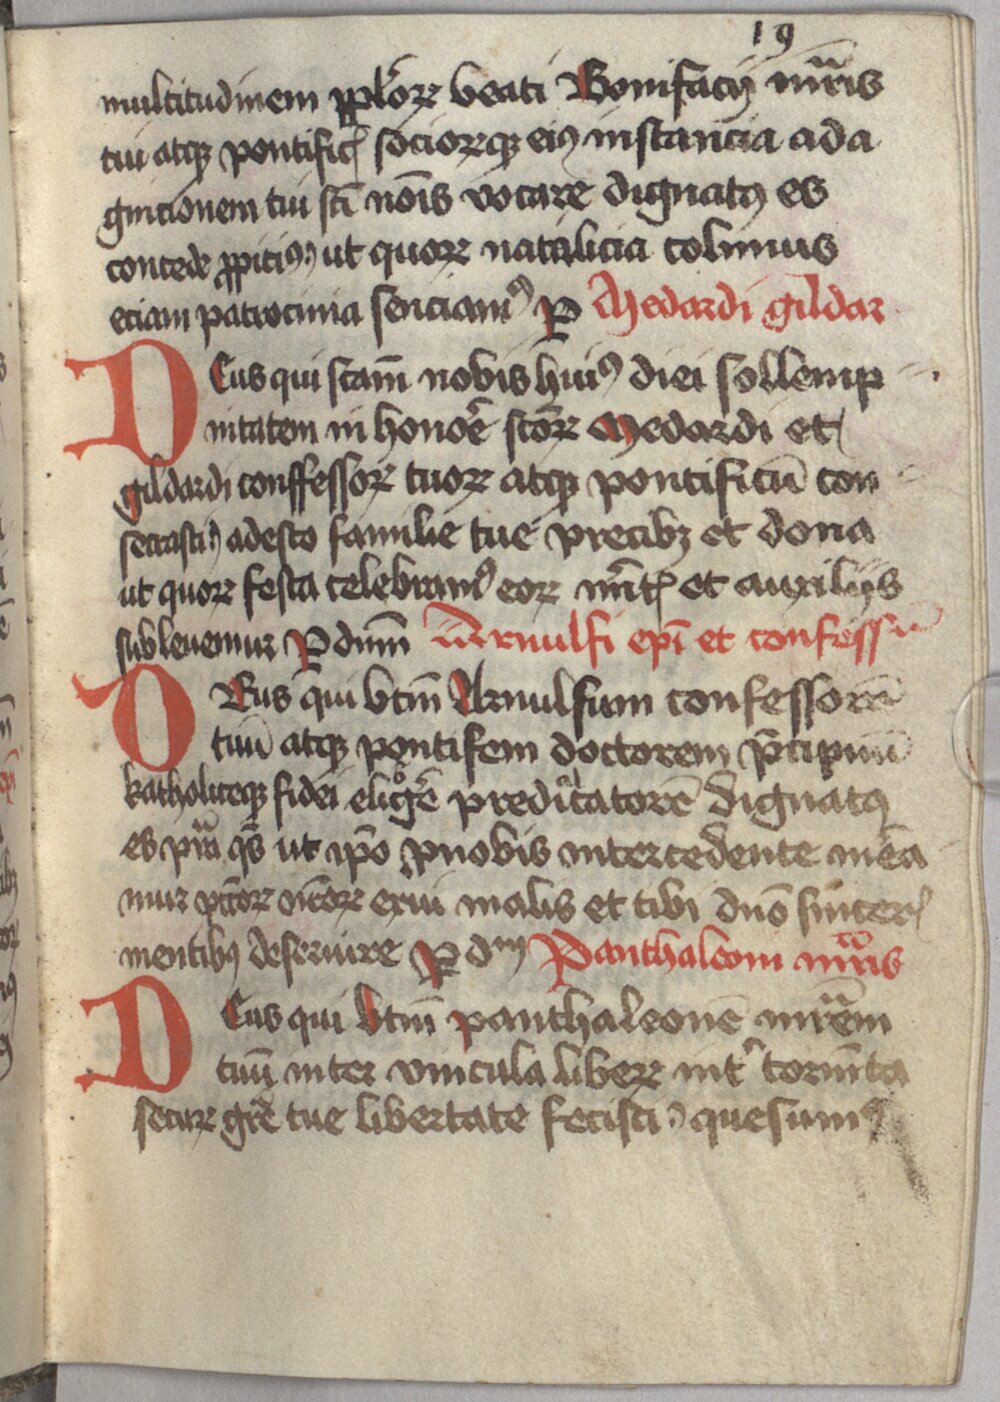 19
multitudinem pplōꝝ beati Bonifacij mr̄is
tui atqꝫ pontificꝭ socioꝝqꝫ eiꝰ instancia ad a
gnicionem tui sc̄i nōis vocare dignatꝰ es
concede ꝓpiciꝰ ut quoꝝ natalicia colimus
eciam patrocinia senciamꝰ P Medardi gildar
Deus qui sc̄am nobis huiꝰ diei sollemp
nitatem in honōe sc̄oꝝ Medardi et
gildardi conffessoꝝ tuoꝝ atqꝫ pontificū con
secrasti adesto familie tue precibꝫ et dona
ut quoꝝ festa celebramꝰ eoꝝ mītꝭ et auxilijs
subleuemur P dnm̄ Arnulfi epī et confess
Deus qui btm̄ Arnulfum confessorē
tuū atqꝫ pontifem doctorem p̄cipuū
katholiceqꝫ fidei eligē predicatorē dignatꝰ
es pr̄a qs̄ ut ip̄o ꝓ nobis intercedente mēa
mur pctōꝝ nr̄oꝝ erui malis et tibi dnō sincerꝭ
mentibꝰ deseruire P dm Panthaleoni mr̄is
Deus qui btm̄ panthaleonē mr̄em
tuū inter vincula liberꝝ intꝰ tormīta
secuꝝ gr̄e tue libertate fecisti quesumꝰ